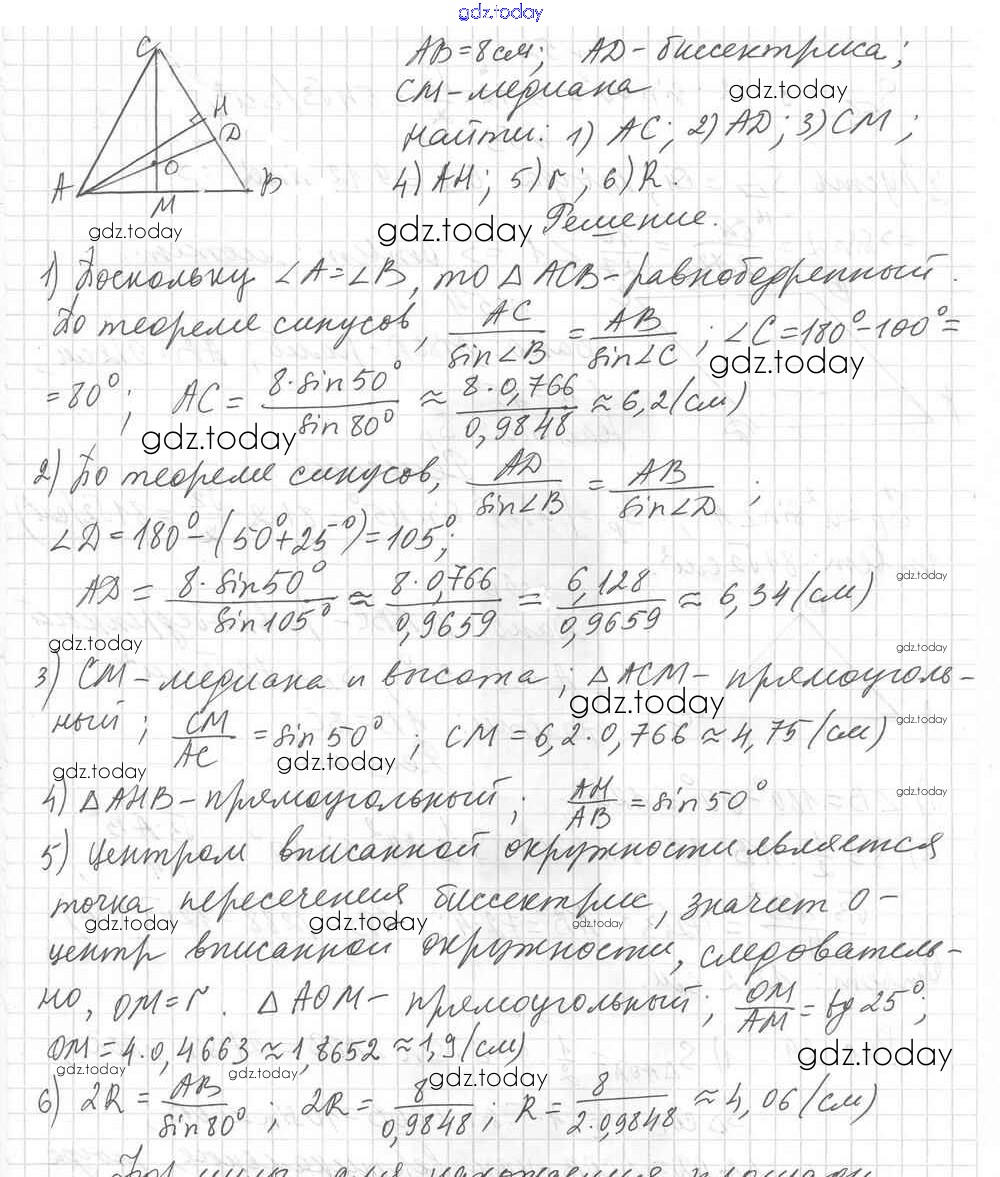 gdz.today
C
H
D
O
A
B
M
AB = 8 см; AD - биссектриса;
CM - медиана
gdz.today
Найти: 1) AC; 2) AD; 3) CM;
4) AH; 5) r; 6) R.
gdz.today
gdz.today
Решение.
1) Поскольку ∠A = ∠B, то △ ACB - равнобедренный.
По теореме синусов, AC/sin∠B = AB/sin∠C; ∠C = 180° - 100° =
gdz.today
= 80°; AC = 8·sin50°/sin80° ≈ 8·0,766/0,9848 ≈ 6,2 (см)
gdz.today
2) По теореме синусов, AD/sin∠B = AB/sin∠D;
∠D = 180° - (50° + 25°) = 105°;
gdz.today
AD = 8·sin50°/sin105° ≈ 8·0,766/0,9659 = 6,128/0,9659 ≈ 6,34 (см)
gdz.today
gdz.today
3) CM - медиана и высота; △ ACM - прямоуголь-
gdz.today
ный; CM/AC = sin50°; CM = 6,2·0,766 ≈ 4,75 (см)
gdz.today
gdz.today
gdz.today
4) △ AHB - прямоугольный; AH/AB = sin50°
gdz.today
5) Центром вписанной окружности является
точка пересечения биссектрис, значит O -
gdz.today
gdz.today
gdz.today
центр вписанной окружности, следователь-
но, OM = r. △ AOM - прямоугольный; OM/AM = tg 25°;
OM = 4·0,4663 ≈ 1,8652 ≈ 1,9 (см)
gdz.today
gdz.today
gdz.today
gdz.today
6) 2R = AB/sin80°; 2R = 8/0,9848; R = 8/2·0,9848 ≈ 4,06 (см)